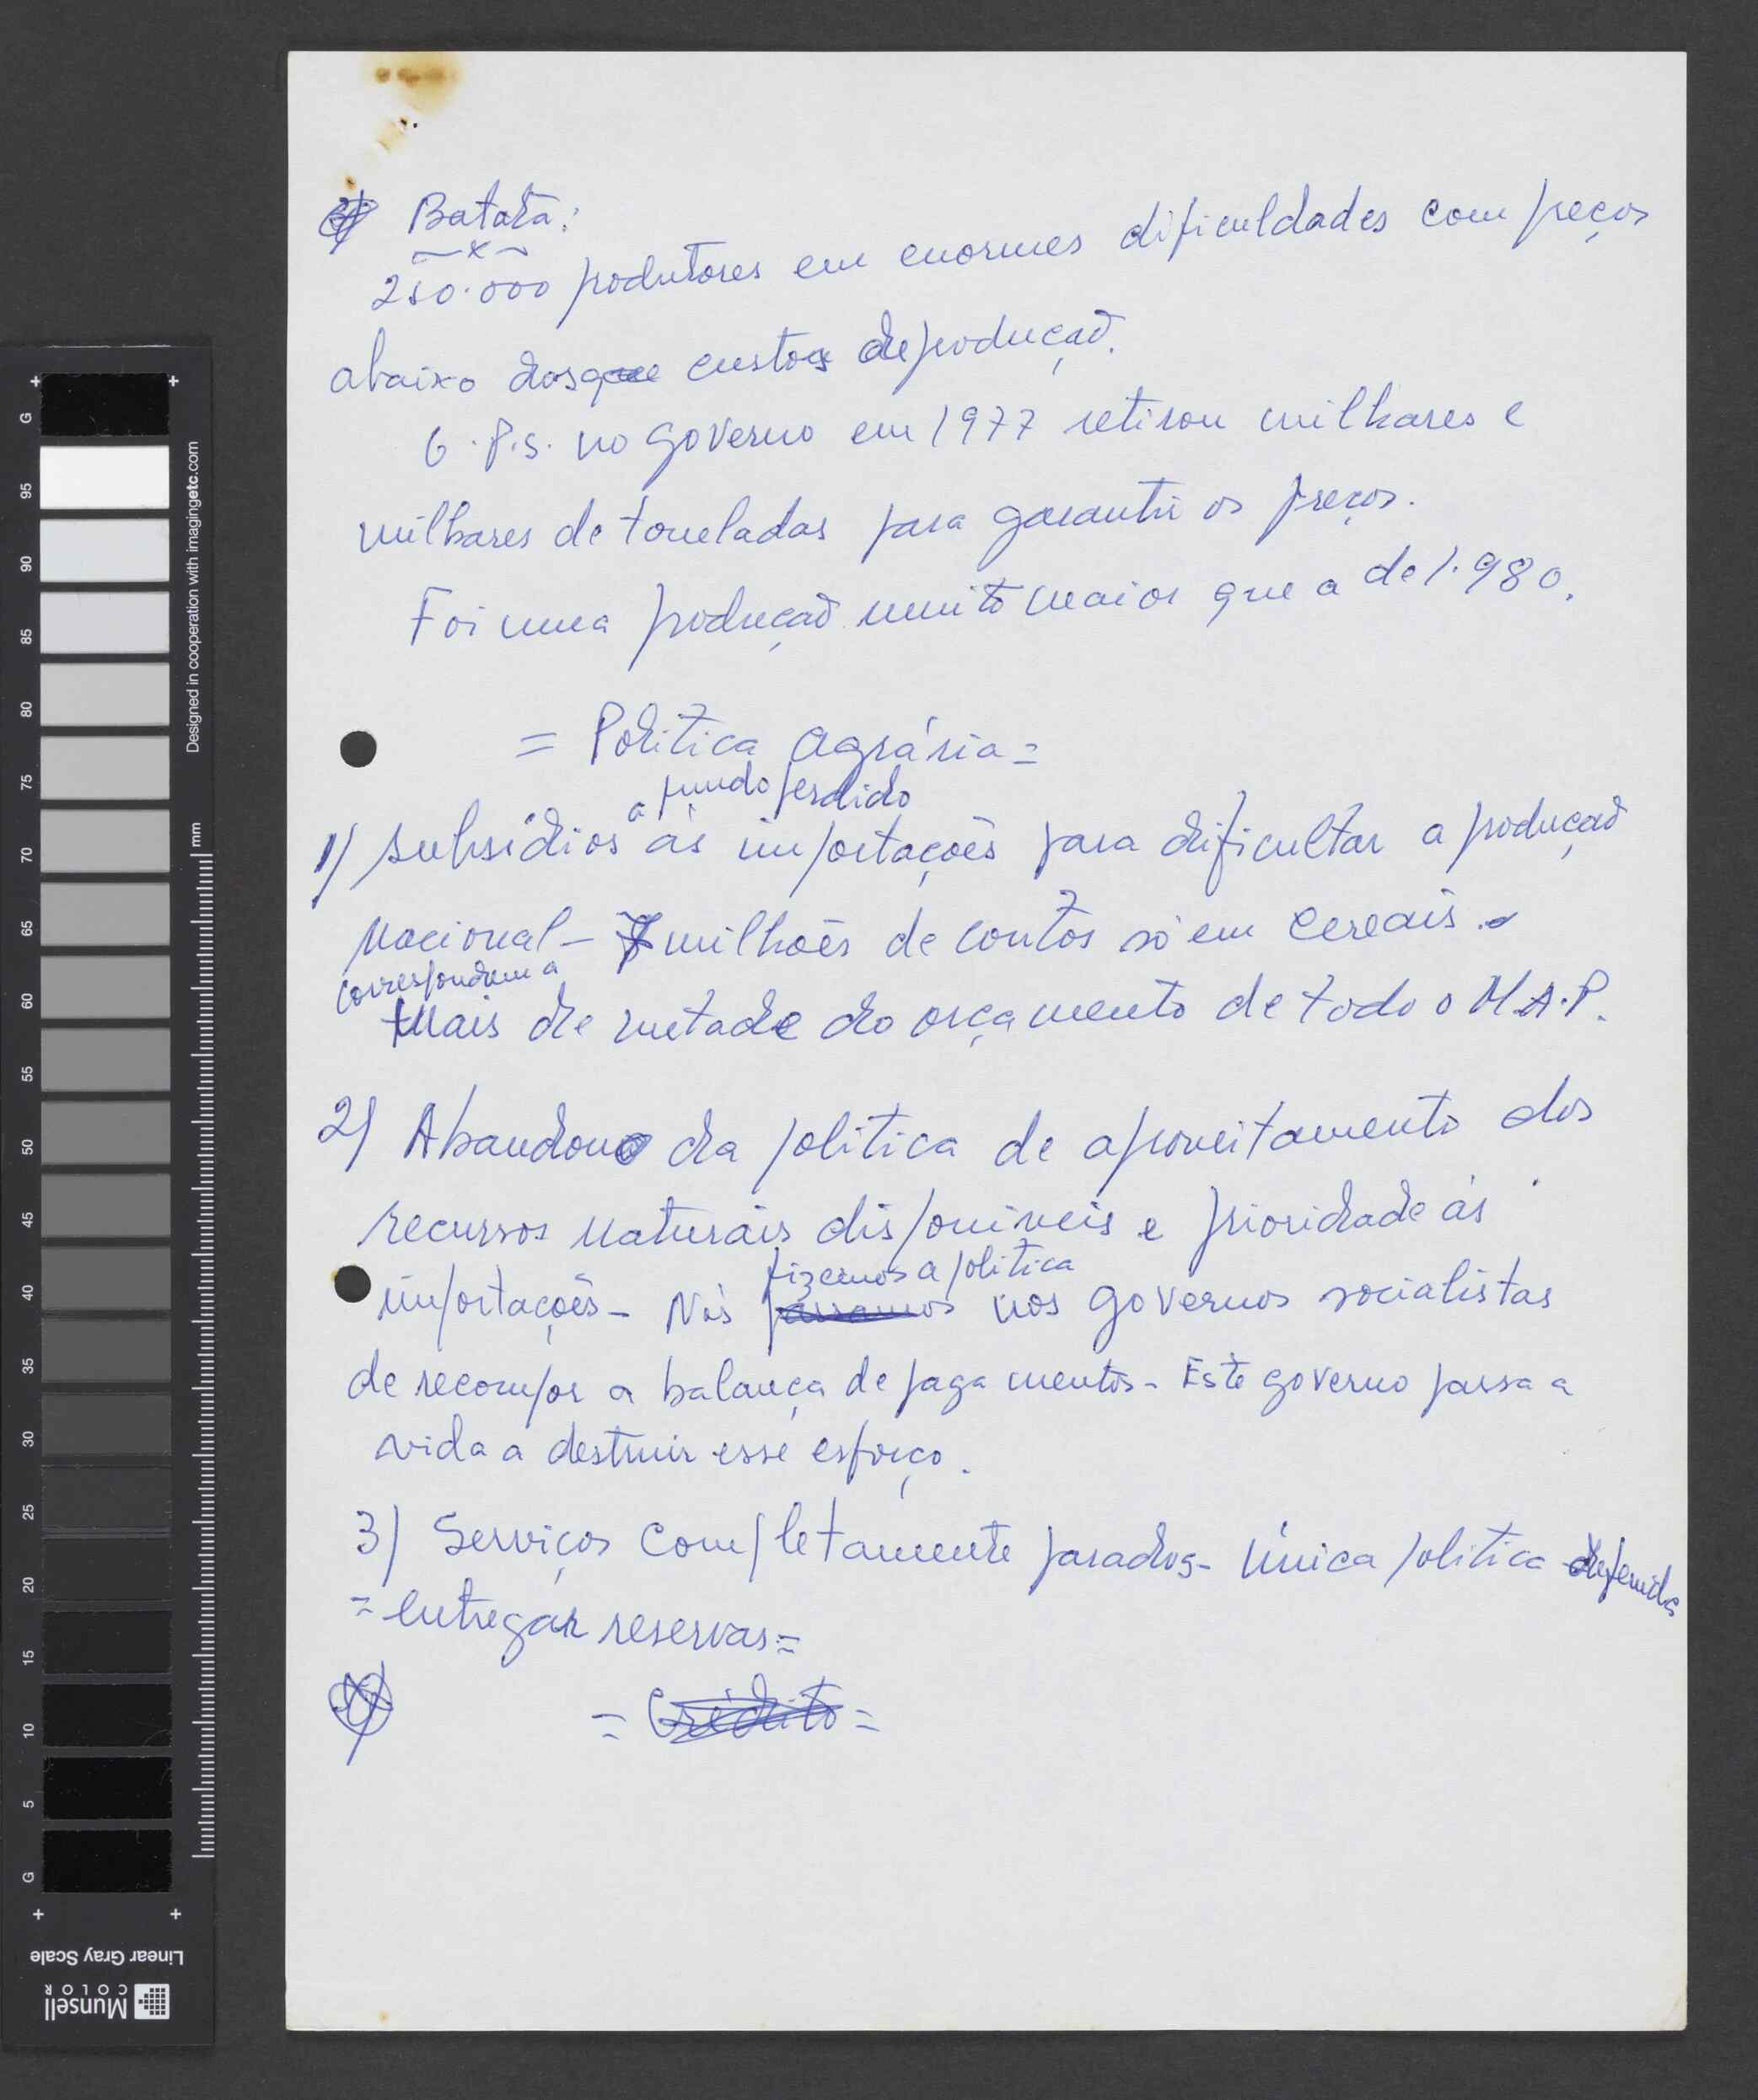 Batata:
250.000 produtores em enormes dificuldades com preços
abaixo dos que custos de produção.
O P.S. no governo em 1977 retirou milhares e
milhares de toneladas para garantir os preços.
Foi uma produção muito maior que a de 1.980.
= Politica agrária =
a fundo perdido
1) subsídios às importações para dificultar a produção
Nacional - 7 milhões de contos só em cereais.
correspondem a
Mais de metade do orçamento de todo o M.A.P.
2) Abandono da politica de aproveitamento dos
recursos naturais disponiveis e prioridade às
fizemos a politica
importações - Nós passamos nos governos socialistas
de recompor a balança de pagamentos - Este governo passa a
vida a destruir esse esforço.
3) Serviços completamente parados - Única politica defenida
= entregar reservas =
= Crédito =
Designed in cooperation with imagingetc.com
mm
G 95 90 85 80 75 70 65 60 55 50 45 40 35 30 25 20 15 10 5 G
Linear Gray Scale
Munsell
COLOR